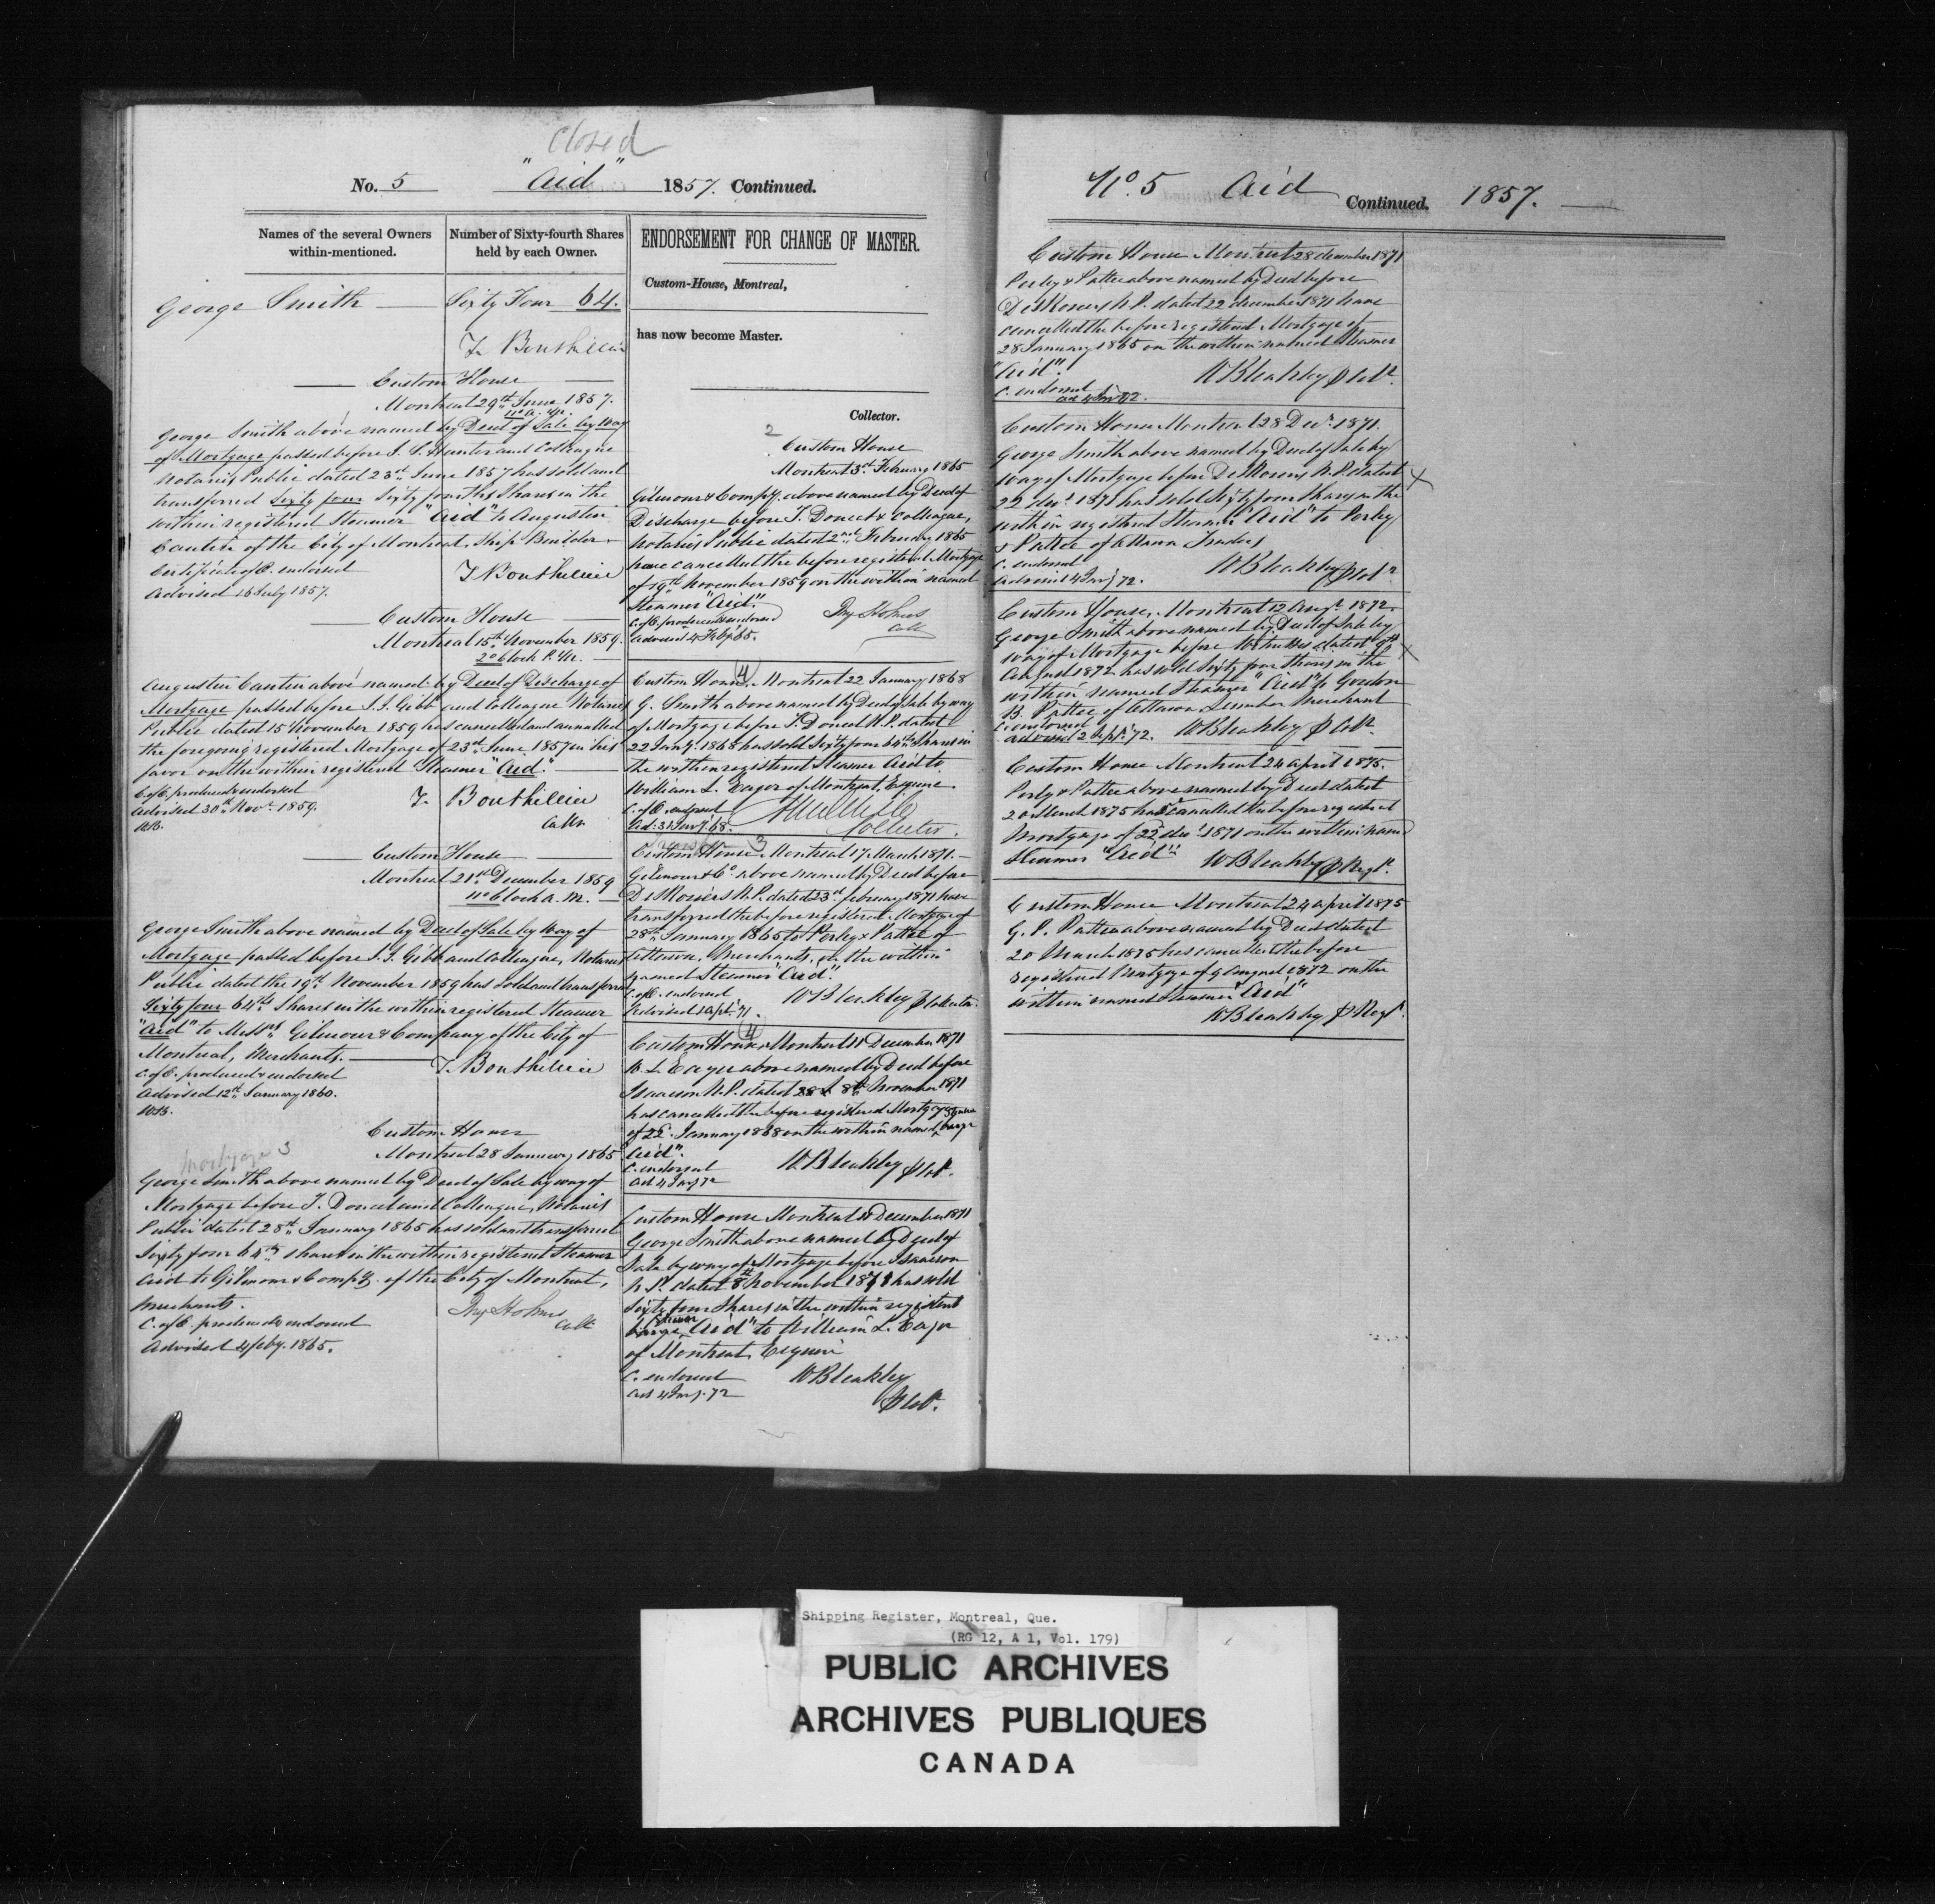 Closed
No. 5 "Aid" 1857. Continued.
Names of the several Owners
within-mentioned.
Number of Sixty-fourth Shares
held by each Owner.
George Smith
Sixty Four 64.
T. Bouthillier
Custom House
Montreal 29th June 1857.
11 o'c. a.m.
George Smith above named by Deed of Sale by Way
of Mortgage passed before J. S. Hunter and Colleague
Notaries Public dated 23rd June 1857 has sold and
transferred Sixty four Sixty fourths Shares in the
within registered Steamer "Aid" to Augustin
Cantin of the City of Montreal, Ship Builder
Certificate of C. endorsed
Advised 16 July 1857.
T. Bouthillier
Custom House
Montreal 15th November 1859.
2 o'Clock P.M.
Augustin Cantin above named by Deed of Discharge of
Mortgage passed before J.J. Gibb and Colleague Notaries
Public dated 15 November 1859 has cancelled and annulled
the foregoing registered Mortgage of 23rd June 1857 in his
favor on the within registered Steamer "Aid".
C. of C. produced & endorsed
Advised 30th Novr. 1859.
T. Bouthillier
Collr
Custom House
Montreal 21st December 1859
11 o'Clock a.m.
George Smith above named by Deed of Sale by Way of
Mortgage passed before J.J. Gibb and Colleague, Notaries
Public dated the 19th November 1859 has sold and transferred
Sixty four 64ths Shares in the within registered Steamer
"Aid" to Messrs Gilmour & Company of the City of
Montreal, Merchants.
C. of C. produced & endorsed
Advised 12th January 1860.
T. Bouthillier
Custom House
Montreal 28 January 1865
Mortgage 3
George Smith above named by Deed of Sale by way of
Mortgage before T. Doucet and Colleague, Notaries
Public dated 28th January 1865 has sold and transferred
Sixty four 64ths shares in the within registered Steamer
Aid to Gilmour & Compy. of the City of Montreal,
Merchants.
C. of C. produced & endorsed
Advised 4 Feby. 1865.
Holmes
Coll
ENDORSEMENT FOR CHANGE OF MASTER.
Custom-House, Montreal,
has now become Master.
Collector.
2
Custom House
Montreal 3rd February 1865
Gilmour & Compy. above named by Deed of
Discharge before T. Doucet & Colleague,
Notaries Public dated 2nd February 1865
have cancelled the before registered Mortgage
of 19th November 1859 on the within named
Steamer "Aid".
C. of C. produced & endorsed
Advised 4 Feby. 65.
Holmes
Coll
4
Custom House, Montreal 22 January 1868
G. Smith above named by Deed of Sale by way
of Mortgage before T. Doucet N.P. dated
22 Jany. 1868 has sold Sixty four 64th Shares in
the within registered Steamer Aid to
William L. Eager of Montreal, Esquire.
C. of C. endorsed
Ad: 31 Jany. 68.
Collector.
Transfer 3
Custom House Montreal 17 March 1871.
Gilmour & Co. above named by Deed before
DeMoriers N.P. dated 23rd february 1871 have
transferred the before registered Mortgage of
28th January 1865 to Perley & Pattee of
Ottawa, Merchants, on the within
named Steamer "Aid".
C. of C. endorsed
Advised 1 Apl. 71.
W Bleakley
4
Custom House Montreal 11 December 1871
W. L. Eager above named by Deed before
Isaacson N.P. dated 8th November 1871
has cancelled the before registered Mortgage
of 22d. January 1868 on the within named Steamer barge
"Aid".
C. endorsed
Ad 4 Jany 72
W. Bleakley
Custom House Montreal 11 December 1871
George Smith above named by Deed of
Sale by way of Mortgage before Isaacson
N.P. dated 8th November 1871 has sold
Sixty four Shares in the within registered
Steamer
barge "Aid" to William L. Eager
of Montreal, Esquire
C. endorsed
Ad 4 Jany. 72
W Bleakley
No. 5 Aid Continued. 1857.
Custom House Montreal 28 december 1871
Perley & Pattee above named by Deed before
N.P. dated 22 december 1871 have
cancelled the before registered Mortgage of
28 January 1865 on the within named Steamer
"Aid".
C. endorsed
ad 4 Jany 72.
W Bleakley
Custom House Montreal 28 Decr. 1871.
George Smith above named by Deed of Sale by
way of Mortgage before N.P. dated
22 decr. 1871 has sold Sixty four Shares in the
within registered Steamer "Aid" to Perley
& Pattee of Ottawa Traders
C. endorsed
Advised 4 Jany 72.
W Bleakley
Custom House, Montreal 12 Augt. 1872.
George Smith above named by Deed of Sale by
way of Mortgage before Witnesses dated 9th
August 1872 has sold Sixty four Shares in the
within named Steamer "Aid" to Gordon
B. Pattee of Ottawa Lumber Merchant
C. endorsed
advised 2 Sept. 72.
W Bleakley
Custom House Montreal 24 April 1875.
Perley & Pattee above named by Deed dated
20 March 1875 has cancelled the before registered
Mortgage of 22d decr. 1871 on the within named
Steamer "Aid"
W Bleakley
Custom House Montreal 24 April 1875
G. B. Pattee above named by Deed dated
20 March 1875 has cancelled the before
registered Mortgage of 9 August 1872 on the
within named Steamer "Aid"
W Bleakley
Shipping Register, Montreal, Que.
(RG 12, A 1, Vol. 179)
PUBLIC ARCHIVES
ARCHIVES PUBLIQUES
CANADA